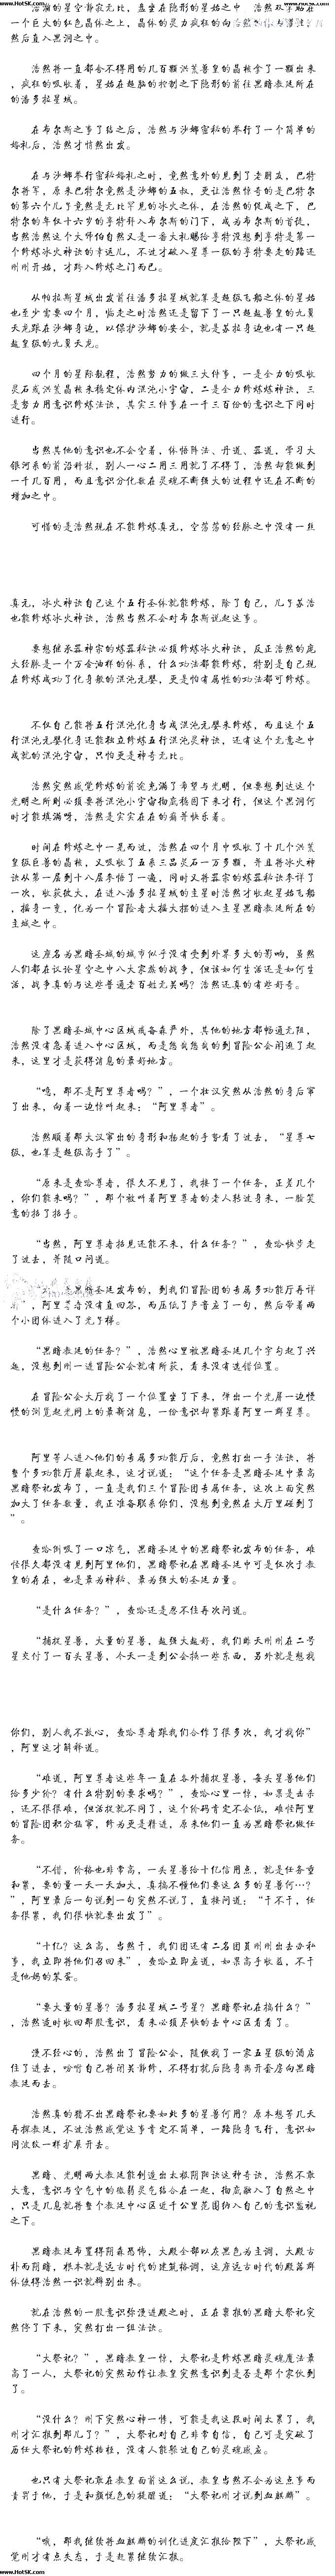 www.HotSK.com
www.HotSK.com
浩瀚的星空静寂无比，盘坐在隐形的星始之中
一个巨大的红色晶体之上，晶体的灵力疯狂的向浩然
然后直入黑洞之中。
浩然将一直都舍不得用的几百颗洪荒兽皇的晶核拿了一颗出来
，疯狂的吸收着，星始在超脑的控制之下隐形的前往黑暗教廷所在
的潘多拉星域。
在布尔斯之事了结之后，浩然与沙娜密秘的举行了一个简单的
婚礼后，浩然才悄然出发。
在与沙娜举行密秘婚礼之时，竟然意外的见到了老朋友，巴特
尔将军，原来巴特尔竟然是沙娜的五叔，更让浩然惊奇的是巴特尔
的第六个儿子竟然是无比罕见的冰火之体，在浩然的促成之下，巴特
尔的年仅十六岁的亨特拜入布尔斯的门下，成为布尔斯的首徒，
当然浩然这个大师伯自然又是一番大礼赐给亨特没想到亨特是第一
个修炼冰火神诀的幸运儿，不过才破入星尊一级的亨特要走的路还
刚刚开始，才踏入修炼之门而已。
从帕拉斯星域出发前往潘多拉星域就算是超级飞船之体的星始
也至少需要四个月，临走之时浩然还是留下了一只超兽皇的九翼
天龙跟在沙娜身边，以保护沙娜的安全，就是苏拉身边也有一只超
兽皇级的九翼天龙。
四个月的星际航程，浩然努力的做三大件事，一是全力的吸收
灵石或洪荒晶核来稳定体内混沌小宇宙，二是全力修炼炼神诀，三
是努力用意识修炼法诀，其实三件事在一千三百份的意识之下同时
进行。
当然其他的意识也不会空着，体悟阵法、丹道、器道，学习大
银河系的前沿科技，别人一心二用三用就了不得了，浩然却能做到
一千几百用，而且意识分化数在灵魂不断强大的过程中还在不断的
增加之中。
可惜的是浩然现在不能修炼真元，空荡荡的经脉之中没有一丝
真元，冰火神诀自己这个五行圣体就能修炼，除了自己，儿子苏浩
也能修炼冰神诀，浩然当然不会对布尔斯说起这事。
要想继承器神宗的炼器秘诀必须修炼冰火神诀，反正浩然的庞
大经脉是一个万金油样的体系，什么功法都能修炼，特别是自己现
在修炼成功了化身般的混沌元婴，更是怕有属性的功法都可修炼。
不仅自己能将五行混沌化身当成混沌元婴来修炼，而且这个五
行混沌元婴化身还能独立修炼五行混沌灵神诀，还有这个无意之中
成就的混沌宇宙，只怕更是神奇无比。
浩然突然感觉修炼的前途充满了希望与光明，但要想到达这个
光明之所则必须要将混沌小宇宙彻底稳固下来才行，但这个黑洞何
时才能填满呀，浩然是实实在在的痛并快乐着。
时间在修炼之中一晃而过，浩然在四个月中吸收了十几个洪荒
皇级巨兽的晶核，又吸收了五系三品灵石一万多颗，并且将冰火神
诀从第一层到十八层参悟了一遍，同时又将器宗的炼器秘诀参详了
一次，收获极大，在进入潘多拉星域的主星时浩然才收起星始飞船
，摇身一变，化为一个冒险者大摇大摆的进入主星黑暗教廷所在的
主城之中。
这座名为黑暗圣城的城市似乎没有受到外界多大的影响，虽然
人们都在议论星空之中八大家族的战争，但该如何生活还是如何生
活，战争真的与这些普通老百姓无关吗？浩然还真的有些好奇。
除了黑暗圣城中心区域戒备森严外，其他的地方都畅通无阻，
浩然没有急着进入中心区域，而是悠哉悠哉的到冒险公会闲逛了起
来，这里才是获得消息的最好地方。
“噫，那不是阿里尊者吗？”，一个壮汉突然从浩然的身后窜
了出来，向着一边惊叫起来：“阿里尊者”。
浩然顺着那大汉窜出的身形和扬起的手臂看了过去，“星尊七
级，也算是超级高手了”。
“原来是查哈尊者，很久不见了，我接了一个任务，正差几个
，你们能来吗？”，那个被叫着阿里尊者的老人转过身来，一脸笑
意的招了招手。
“当然，阿里尊者招见还能不来，什么任务？”，查哈快步走
了过去，并随口问道。
圣廷发布的，到我们冒险团的专属多功能厅再详
”，阿里尊者没有直回答，而压低了声音应了一句，然后带着两
个小团体进入了光子梯。
“黑暗教廷的任务？”，浩然心里被黑暗圣廷几个字勾起了兴
趣，没想到刚一进冒险公会就有所获，看来没有选错位置。
在冒险公会大厅找了一个位置坐了下来，弹出一个光屏一边慢
慢的浏览起光网上的最新消息，一份意识却紧跟着阿里一群星尊。
阿里等人进入他们的专属多功能厅后，竟然打出一手法诀，将
整个多功能厅屏蔽起来，这才说道：“这个任务是黑暗圣廷中最高
黑暗祭祀发布了，一直是我们三个冒险团专属任务，这次上面突然
加大了任务数量，我正准备联系你们，没想到竟然在大厅里碰到了
”。
查哈倒吸了一口凉气，黑暗圣廷中的黑暗祭祀发布的任务，难
怪很久都没有见到阿里他们，黑暗祭祀在黑暗圣廷中可是仅次于教
皇的存在，也是最为神秘、最为强大的圣廷力量。
“是什么任务？”，查哈还是忍不住再次问道。
“捕捉星兽，大量的星兽，超强大越好，我们昨天刚刚在二号
星交付了一百头星兽，今天一是到公会换一些东西，另外就是想找
你们，别人我不放心，查哈尊者跟我们合作了很多次，我才找你”
，阿里这才解释道。
“难道，阿里尊者这些年一直在各外捕捉星兽，每头星兽他们
给多少价？有什么特别的要求吗？”，查哈心里一惊，如果是击杀
，还不很很难，但活捉就不同了，这个价码肯定不会低，难怪阿里
的冒险团积分猛窜，终为更是精进，原来他们一直为黑暗祭祀做任
务。
“不错，价格也非常高，一头星兽给十亿信用点，就是任务重
和紧，要的量一天一天加大，真搞不懂他们要这么多的星兽何…？
”，阿里最后一句说到一句突然不说了，直接问道：“干不干，任
务很紧，我们很快就要出发了”。
“十亿？这么高，当然干，我们团还有二名团员刚刚出去办私
事，我立即将他们召回来”，查哈立即应道，如果高手收益，不干
是他妈的笨蛋。
“要大量的星兽？潘多拉星域二号星？黑暗祭祀在搞什么？”
，浩然适时收回那股意识，看来必须尽快的去中心区看看了。
漫不轻心的，浩然出了冒险公会，随便找了一家五星级的酒店
住了进去，吩咐自己将闭关静修，不得打扰后隐身离开套房向黑暗
教廷而去。
浩然真的猜不出黑暗祭祀要如此多的星兽何用？原本想等几天
再探教廷，不过浩然感觉这事肯定不简单，一路隐身飞行，意识如
同波纹一样扩展开去。
黑暗、光明两大教廷能创造出太极阴阳诀这种奇诀，浩然不敢
大意，意识与空气中的微弱灵气结合在一起，彻底融入了自然之中
，只是几息就将整个教廷中心区近千公里范围纳入自己的意识监视
之下。
黑暗教廷布置得阴森恐怖，大殿全部以灰黑色为主调，大殿古
朴而阴暗，根本就是远古时代的建筑格调，这座远古时代的殿落群
体使得浩然一识就辩别出来。
就在浩然的一股意识弥漫进殿之时，正在禀报的黑暗大祭祀突
然停了下来，突然打出一组法诀。
“大祭祀？”，黑暗教皇一惊，大祭祀是修炼黑暗灵魂魔法最
高了一人，大祭祀的突然动作让教皇突然意识到是否是那个家伙到
了。
“没什么？刚下突然心神一悸，可能是我这段时间太累了，我
刚才汇报到那儿了？”，大祭祀对自己非常自信，自己可是突破了
历任大祭祀的修炼桎梏，没有人能躲过自己的灵魂感应。
也只有大祭祀敢在教皇面前这么说，教皇当然不会为这点事而
责罚于他，于是和颜悦色的提醒道：“大祭祀刚才说到血麒麟”。
“哦，那我继续将血麒麟的驯化进度汇报给陛下”，大祭祀感
觉刚才有点失态，于是赶紧继续汇报。
www.HotSK.com
www.HotSK.com